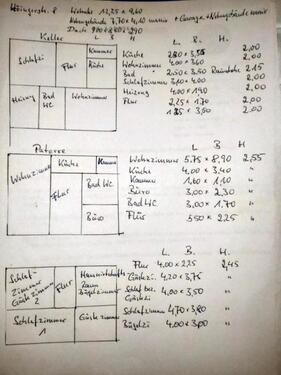 Wohnhs 12,25 x 9,40
Nebengebäude 7,70 x 4,40 + Garage + Nebengebäude
Keller
L B H
Kammer
Küche
Schlafzi
Flur
Küche 2,80 x 3,55 2,00
Wohnzimmer 4,00 x 3,60 2,00
Bad 2,50 x 3,50 2,15
Schlafzimmer 3,00 x 4,00 2,00
Heizung
Bad WC
Wohnzimmer
Heizung 4,00 x 1,90 2,00
Flur 2,25 x 1,70 2,00
1,35 x 3,50 2,00
Paterre
L B H
Wohnzimmer
Küche
Kammer
Wohnzimmer 5.75 x 8,90 2,55
Küche 4,00 x 3,40 "
Kammer 1,60 x 1,10 "
Flur
Bad WC
Büro 3,00 x 2,30 "
Bad WC 3,00 x 1,70 "
Büro
Flur 3,50 x 2,25 "
L. B. H.
Flur 4,00 x 2,25 2,45
Schlaf-
Zimmer
Gästezimmer
2
Flur
Hauswirtschafts
Raum
Bügelzimmer
Gästezi. 4,20 x 3,75 "
Schlaf bez.
Gästezi 4,00 x 3,50 "
Schlafzimmer
1
Gästezimmer
Schlafzimmer 4,70 x 3,80 "
Bügelzi 4,00 x 3,00 "